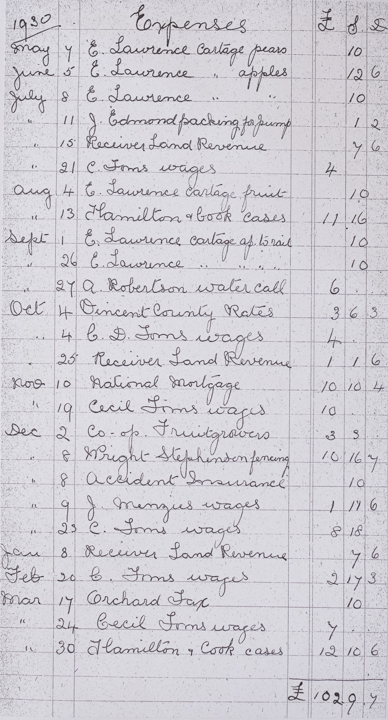 1930 Expenses £ S D
May 7 E. Lawrence cartage pears 10
June 5 E. Lawrence " apples 12 6
July 8 E. Lawrence " " 10
" 11 J. Edmond packing for pump 1 2
" 15 Receiver Land Revenue 7 6
" 21 C. Toms wages 4
Aug 4 E. Lawrence cartage fruit 10
" 13 Hamilton & Cook cases 11 16
Sept 1 E. Lawrence cartage ap. to rail 10
" 26 E. Lawrence " " " " 10
" 27 A. Robertson water call 6
Oct 4 Vincent County Rates 3 6 3
" 4 C. D. Toms wages 4
" 25 Receiver Land Revenue 1 1 6
Nov 10 National Mortgage 10 10 4
" 19 Cecil Toms wages 10
Dec 2 Co-op. Fruitgrowers 3 3
" 8 Wright Stephenson fencing 10 16 7
" 8 Accident Insurance 10
" 9 J. Menzies wages 1 6
" 23 C. Toms wages 8 18
Jan 8 Receiver Land Revenue 7 6
Feb 20 C. Toms wages 2 17 3
Mar 17 Orchard Tax 10
" 24 Cecil Toms wages 7
" 30 Hamilton & Cook cases 12 10 6
£ 102 9 7